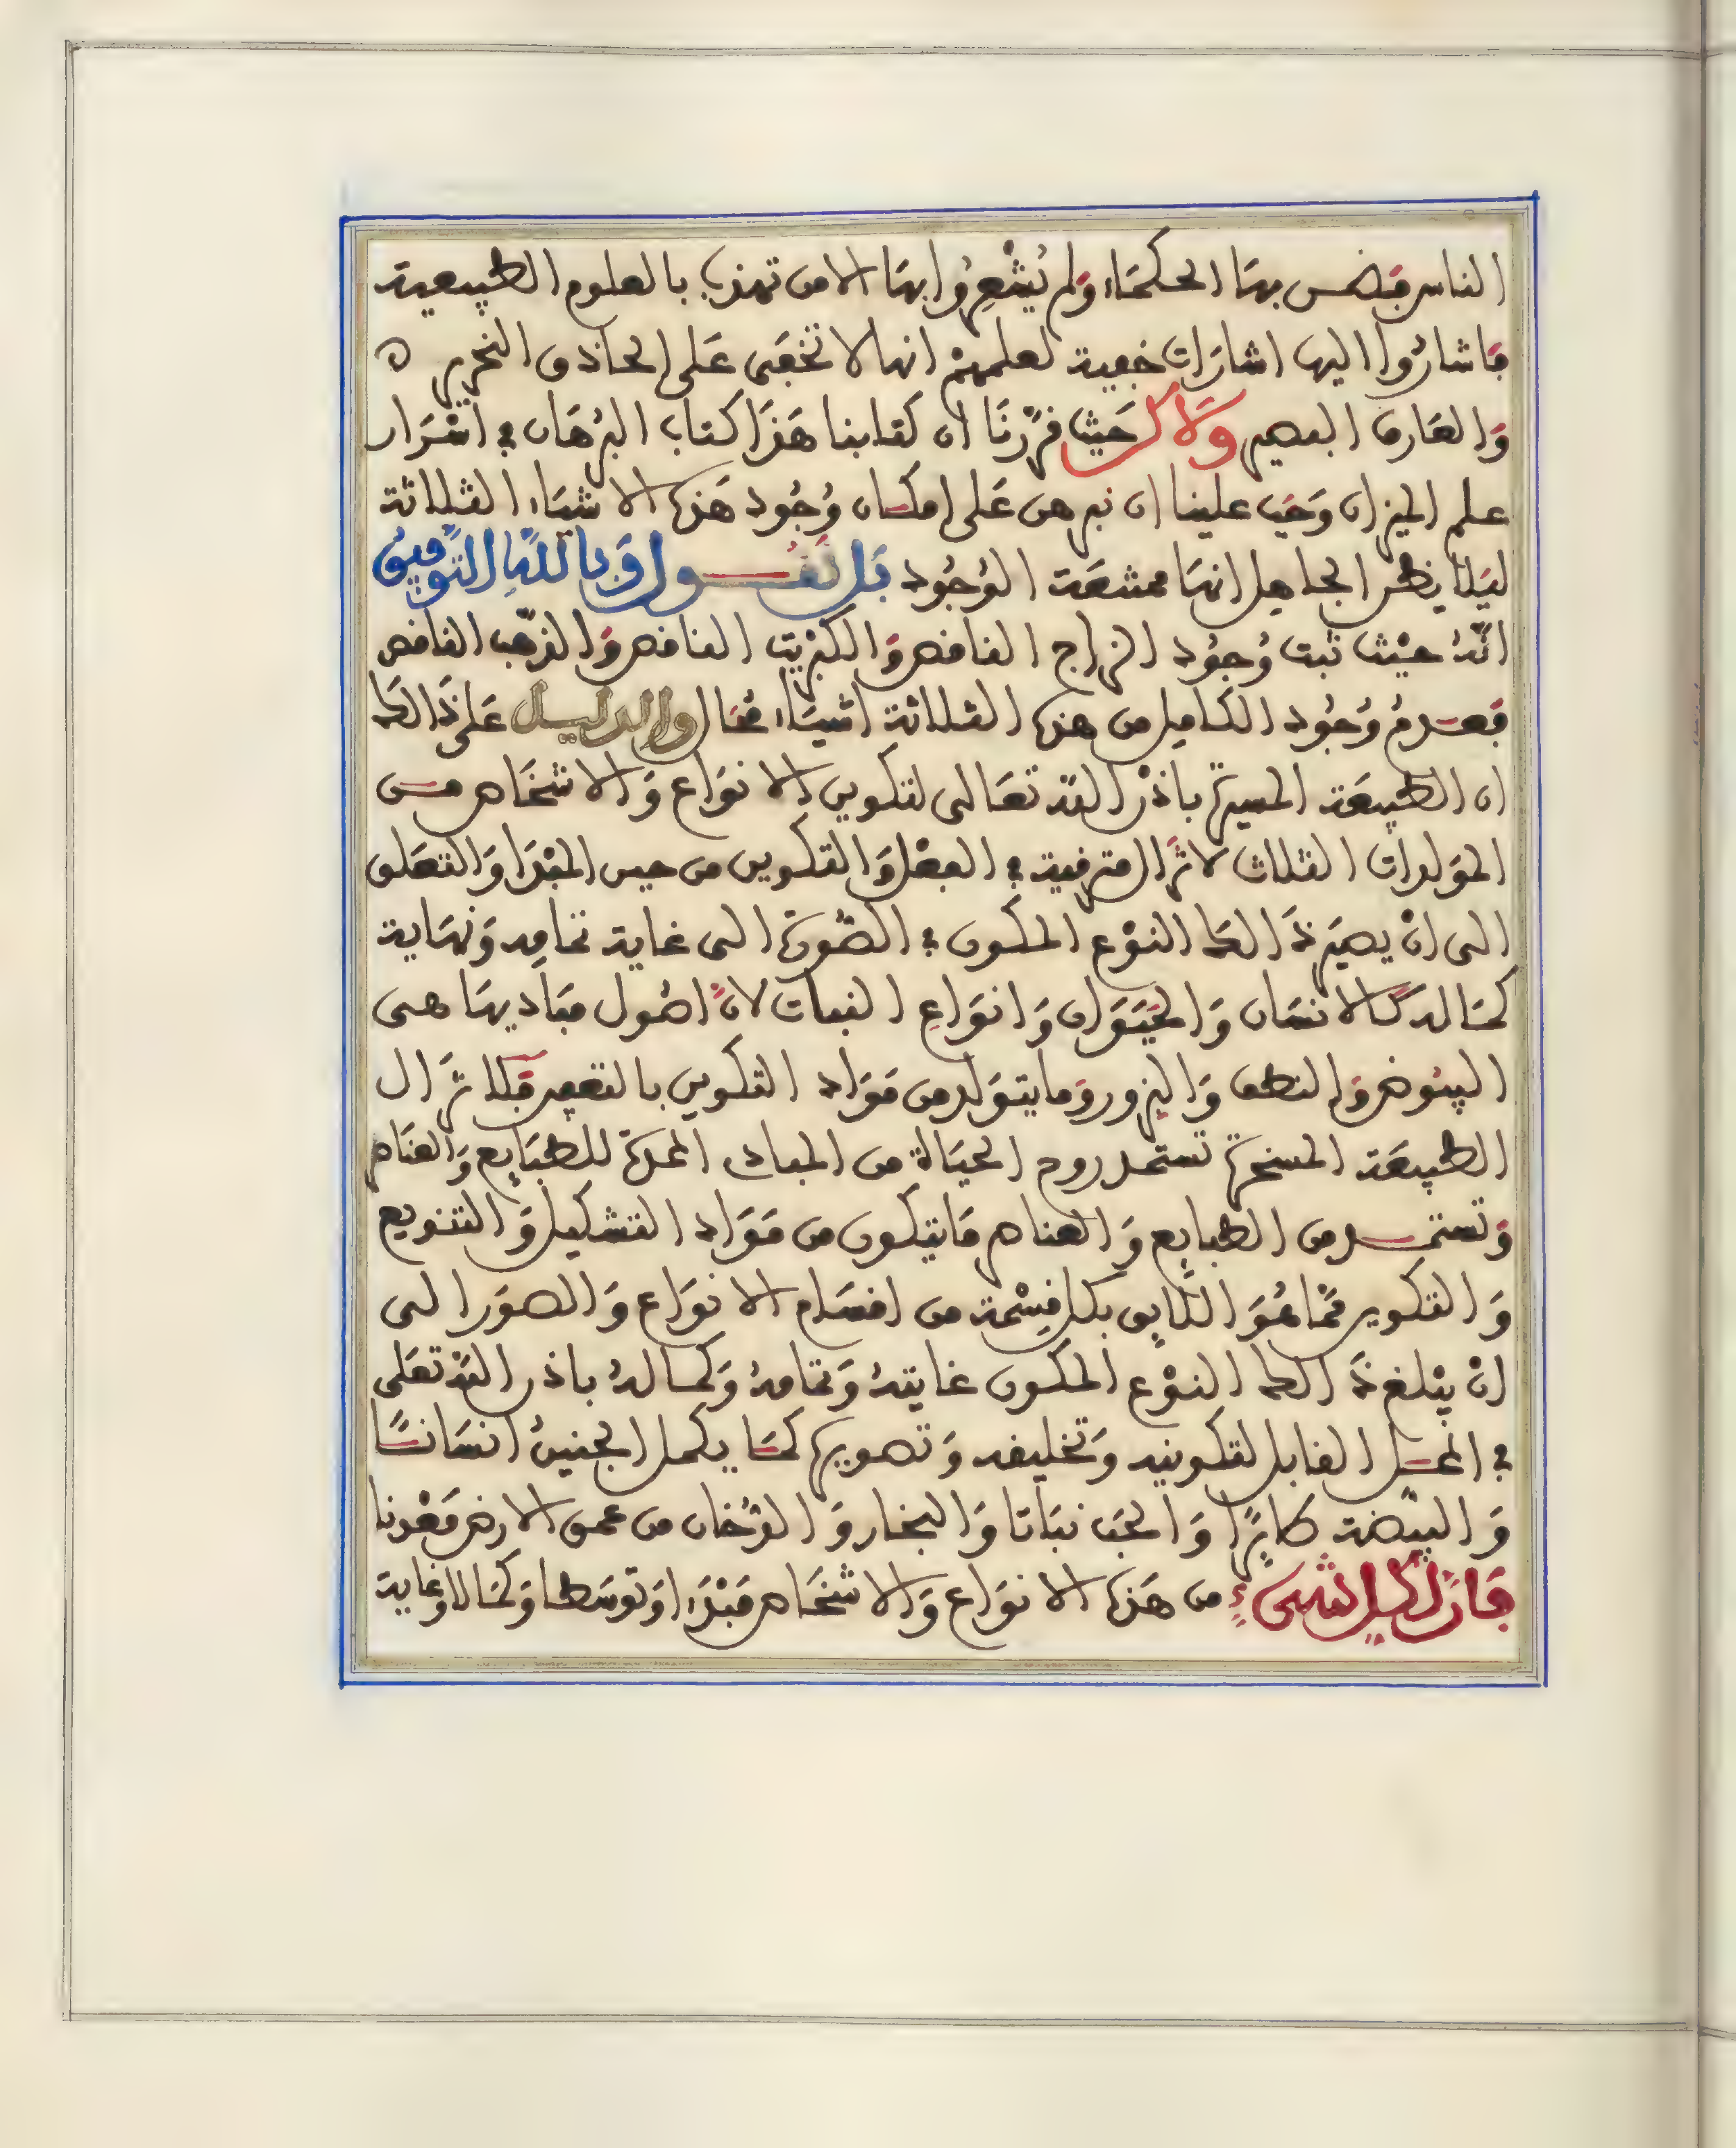 الناس فضن بها الحكماء ولم يُشْعِرُوا بها الا من تهذب بالعلوم الطبيعية
فاشارُوا اليها اشارات خفية لعلمهمْ انها لا تخفى على الحاذق النحرير ه
والعارف البصير ولاكن حيث قرّرنا ان كتابنا هذا كتاب البرهان في اسْرَار
علم الميزان وَجَب علينا ان نبرهن على امكان وُجُود هذه الاشياء الثلاثة
ليَلا يظن الجاهل انها ممتنعة الوُجُود بل نقول وبالله التّوفيق
انّهُ حيْث ثبت وُجُود الزاج الناقص وَالكبْريت الناقص وَالذهب الناقص
فعدمُ وُجُود الكامل من هذه الثلاثة اشياء مُحال والدليل على ذَالك
ان الطبيعَة المسيرة باذن الله تعَالى لتكوين الانوَاع وَالاشخاص من
الموَلدات الثلاث لا تزال مترقية في الفعْل وَالتكوين من حين المبْدَا وَالتعَلق
الى انْ يصيَر ذَالك النوْع المكون في الصّورَة الى غاية تمامِه وَنهاية
كمَاله كالانسَان وَالحيَوَان وَانوَاعِ النبات لانّ اصُول مبَاديها هي
البيُوض وَالنطف وَالبزور وَما يتوَلد من موَاد التكوين بالتعفين فلا تزَال
الطبيعَة المسخرة تستمد روح الحيَاة من المبادى الممدة للطبَايع وَالعناصر
وَتستمد من الطبايع وَالعناصر مَا يتكون من موَاد التشكيل وَالتنويع
وَالتكوين ممّا هُوَ اللّايق بكل قِسْمة من اقسَام الانوَاع وَالصوَر الى
انْ يبْلغ ذَالك النوْع المكون غايتهُ وَتمامهُ وَكمالهُ باذن الله تعَلى
في المحل القابل لتكوينه وَتخليقه وَتصويره كمَا يكمل الجنينُ انسَانًا
وَالبيْضة طايرًا وَالحَب نبَاتا وَالبخار وَالدُّخان من عمق الارض معْدنا
فاذن لكل شىء من هَذه الانوَاع وَالاشخاص مَبْدَا وَتوَسّطا وَكمَالا وَغاية